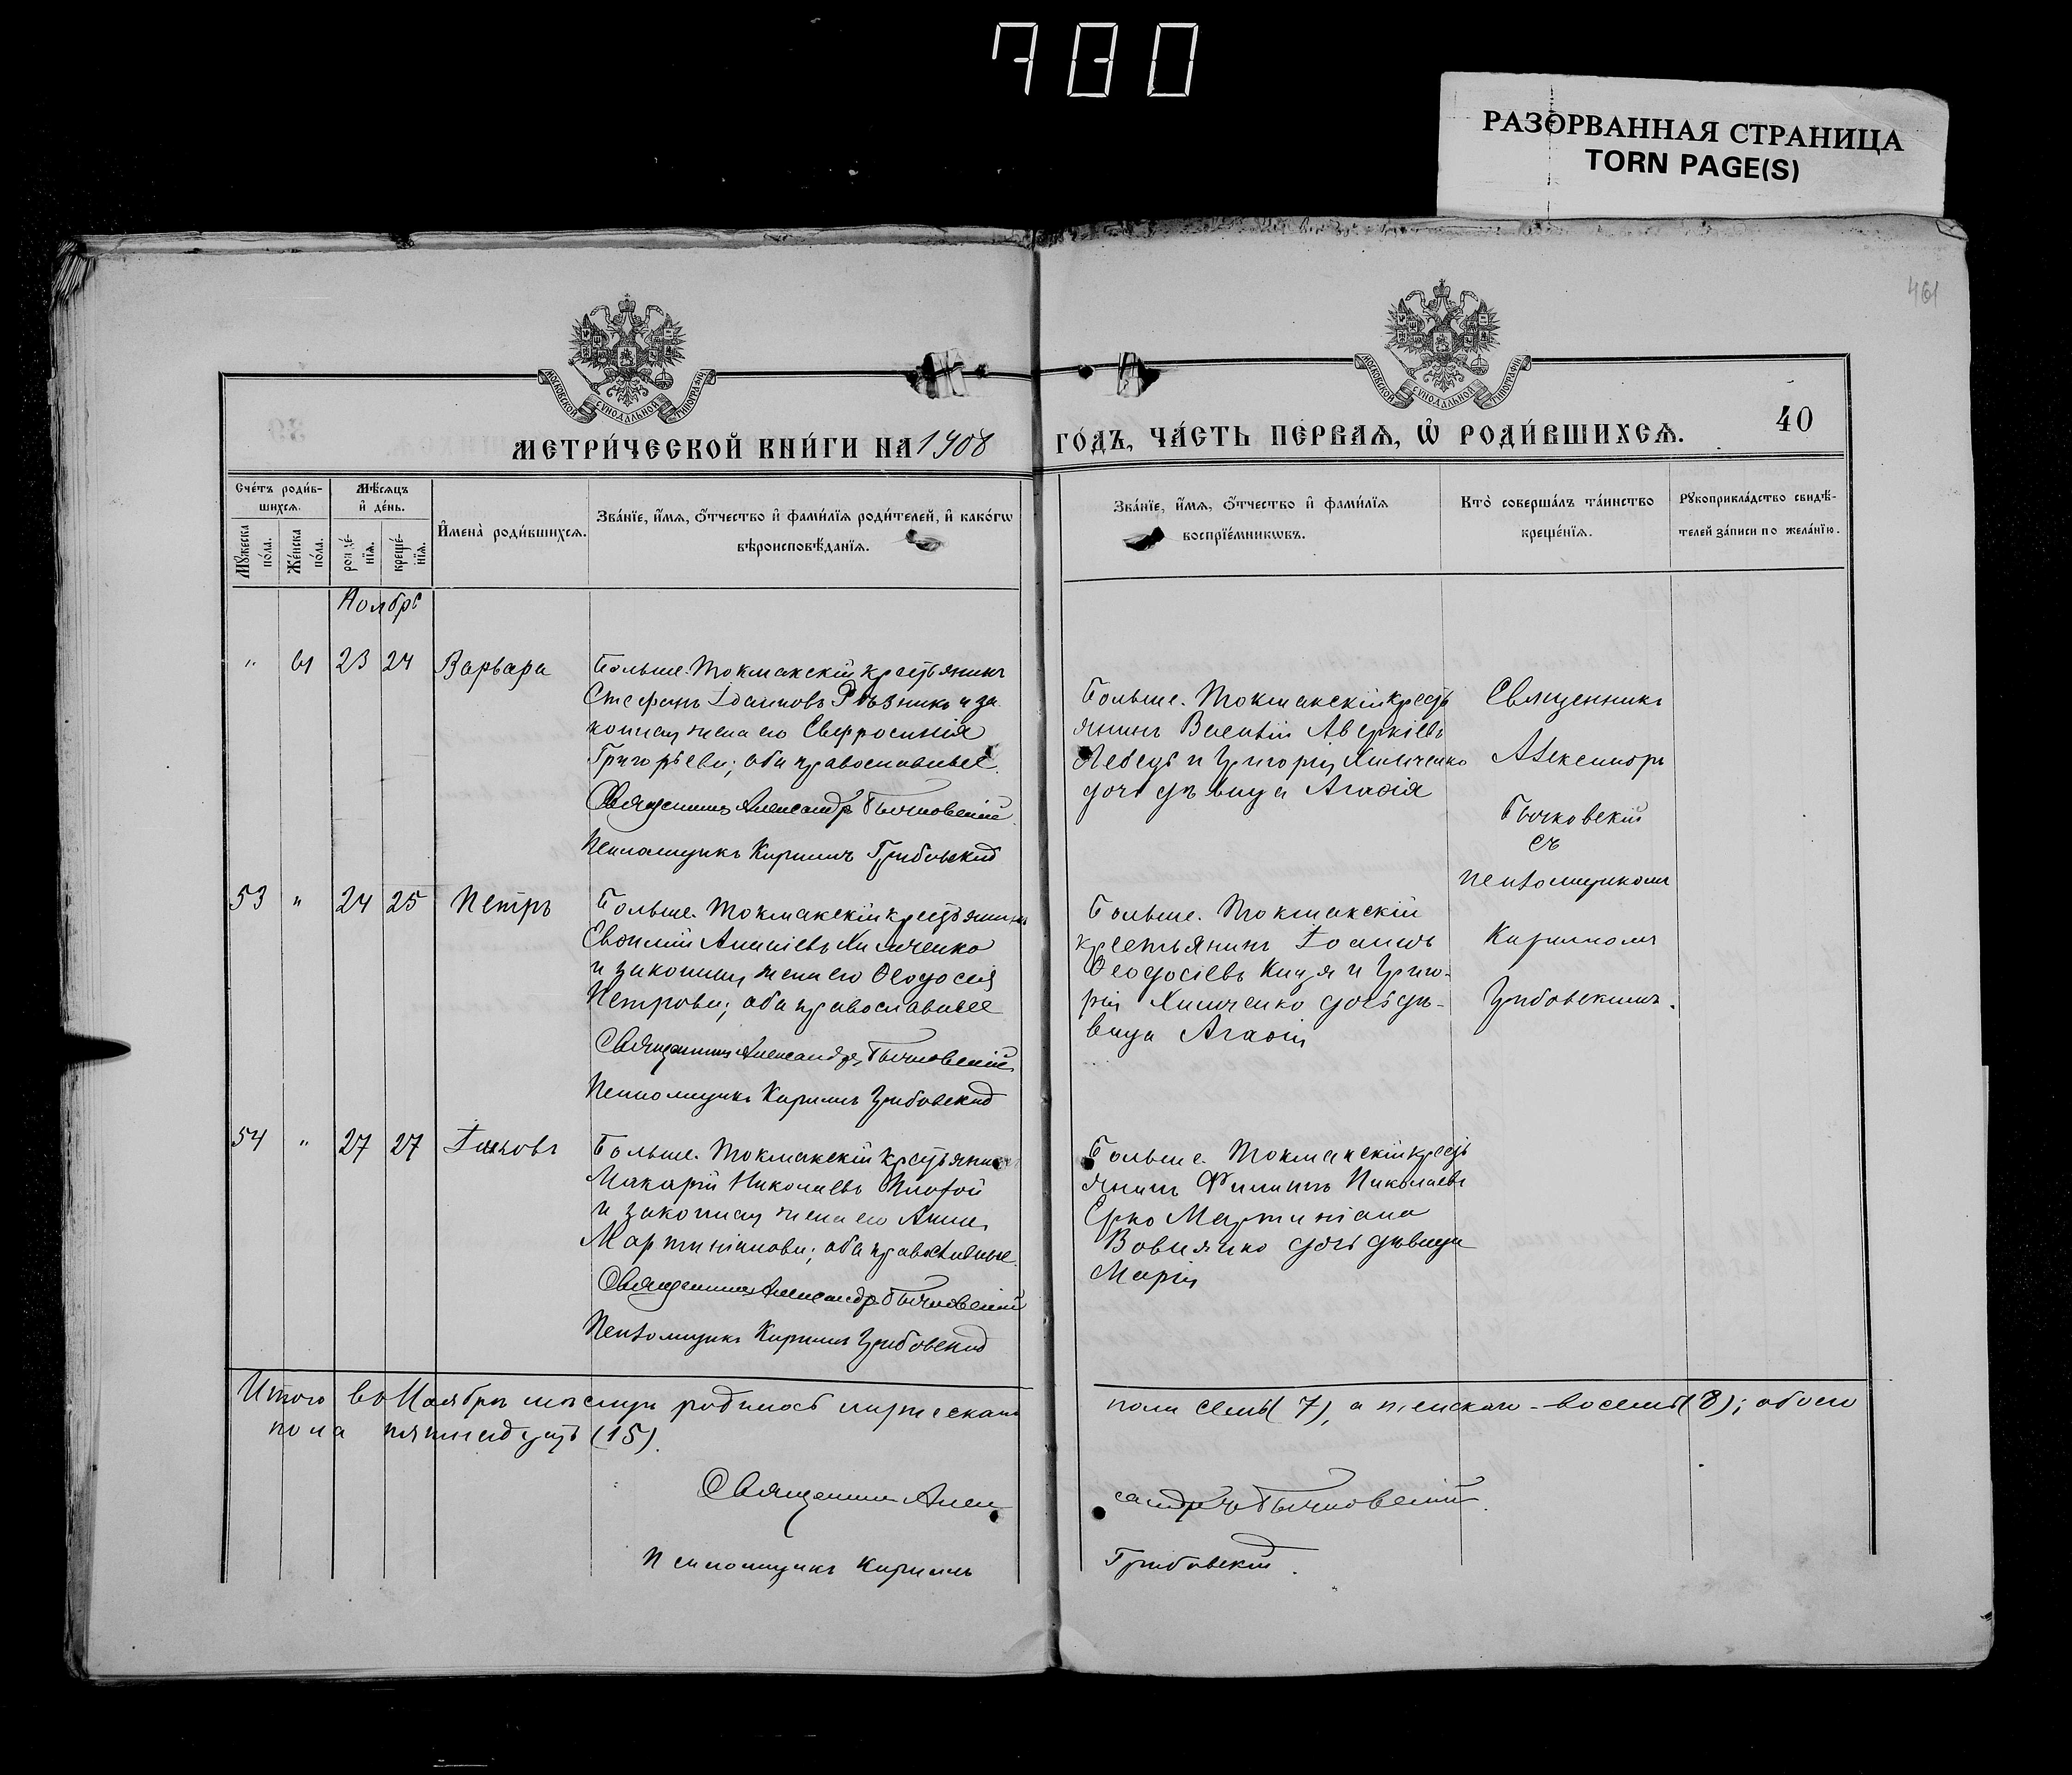 780
РАЗОРВАННАЯ СТРАНИЦА
TORN PAGE(S)
461
МОСКОВСКОЙ СѴНОДАЛЬНОЙ ТИПОГРАФІИ
МОСКОВСКОЙ СѴНОДАЛЬНОЙ ТИПОГРАФІИ
МЕТРИ́ЧЕСКОЙ КНИ́ГИ НА 1908
ГО́ДЪ, ЧА́СТЬ ПЕ́РВАѦ, Ѡ҆ РОДИ́ВШИХСѦ.
40
Сче́тъ роди́в-
шихсѧ.
Мꙋ́жеска
по́ла.
Же́нска
по́ла.
Мѣ́сѧцъ
и҆ де́нь.
рожде́-
нїѧ.
креще́-
нїѧ.
И҆мена̀ роди́вшихсѧ.
Зва́нїе, и҆́мѧ, ѻ҆́тчество и҆ фами́лїѧ роди́телей, и҆ како́гѡ
вѣроисповѣ́данїѧ.
Зва́нїе, и҆́мѧ, ѻ҆́тчество и҆ фами́лїѧ
воспрїе́мникѡвъ.
Кто̀ соверша́лъ та́инство
креще́нїѧ.
Рꙋкоприкла́дство свидѣ́-
телей за́писи по жела́нїю.
Ноябрь
" 61 23 24 Варвара
Больше-Токмакскій крестьянинъ
Стефанъ Іоанновъ Рѣзникъ и за
конная жена его Евфросинія
Григорьева; оба православные.
Священникъ Александръ Бычковскій.
Псаломщикъ Кириллъ Грибовскій
Больше-Токмакскій кресть
янинъ Аверкіевъ
Лебедь и Григорія Хильченко
дочь дѣвица Агафія
Священникъ
Александръ
Бычковскій
съ
псаломщикомъ
Кирилломъ
Грибовскимъ.
53 " 24 25 Петръ
Больше-Токмакскій крестьянинъ
Ананіевъ Хильченко
и законная жена его Ѳеодосія
Петрова; оба православные
Священникъ Александръ Бычковскій
Псаломщикъ Кириллъ Грибовскій
Больше-Токмакскій
крестьянинъ Іоаннъ
Ѳеодосіевъ и Григо-
рія Хильченко дочь дѣ-
вица Агафія
54 " 27 27 Іаковъ
Больше-Токмакскій крестьянинъ
Макарій Николаевъ Плохой
и законная жена его Анна
Мартиніанова; оба православные.
Священникъ Александръ Бычковскій
Псаломщикъ Кириллъ Грибовскій
Больше-Токмакскій кресть
янинъ Филиппъ Николаевъ
Ерко Мартиніана
Вовнянко дочь дѣвица
Марія
Итого въ Ноябрѣ мѣсяцѣ родилось мужескаго
пола семь (7), а женскаго - восемь (8); обоего
пола пятнадцать (15).
Священникъ Алек
сандръ Бычковскій.
Псаломщикъ Кириллъ
Грибовскій.